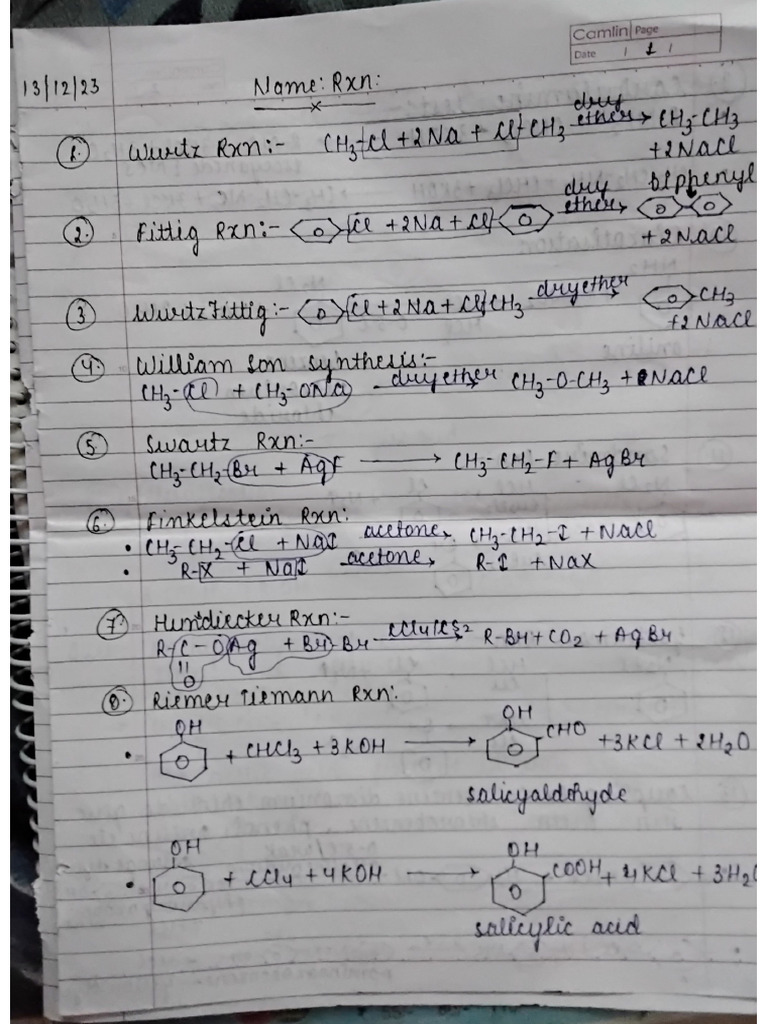 Camlin Page
Date / 1 /
13/12/23 Name: Rxn:
1. Wurtz Rxn:- CH3-Cl + 2Na + Cl-CH3 dry ether → CH3-CH3
+ 2NaCl
Biphenyl
2. Fittig Rxn:- Cl + 2Na + Cl dry ether →
+ 2NaCl
3 Wurtz Fittig:- Cl + 2Na + Cl CH3 dry ether → CH3
+2NaCl
4. William Son Synthesis:-
CH3-Cl + CH3-ONa dry ether → CH3-O-CH3 + NaCl
5 Swartz Rxn:-
CH3-CH2-Br + AgF → CH3-CH2-F + AgBr
6. Finkelstein Rxn:
• CH3-CH2-Cl + NaI acetone → CH3-CH2-I + NaCl
• R-X + NaI acetone → R-I + NaX
7. Hundiecker Rxn:-
R-C-OAg + Br-Br CCl4/CS2 → R-Br + CO2 + AgBr
O
8. Riemer Tiemann Rxn:
OH OH
• + CHCl3 + 3KOH → CHO + 3KCl + 2H2O
salicyaldehyde
OH OH
• + CCl4 + 4KOH → COOH + 4KCl + 3H2O
salicylic acid